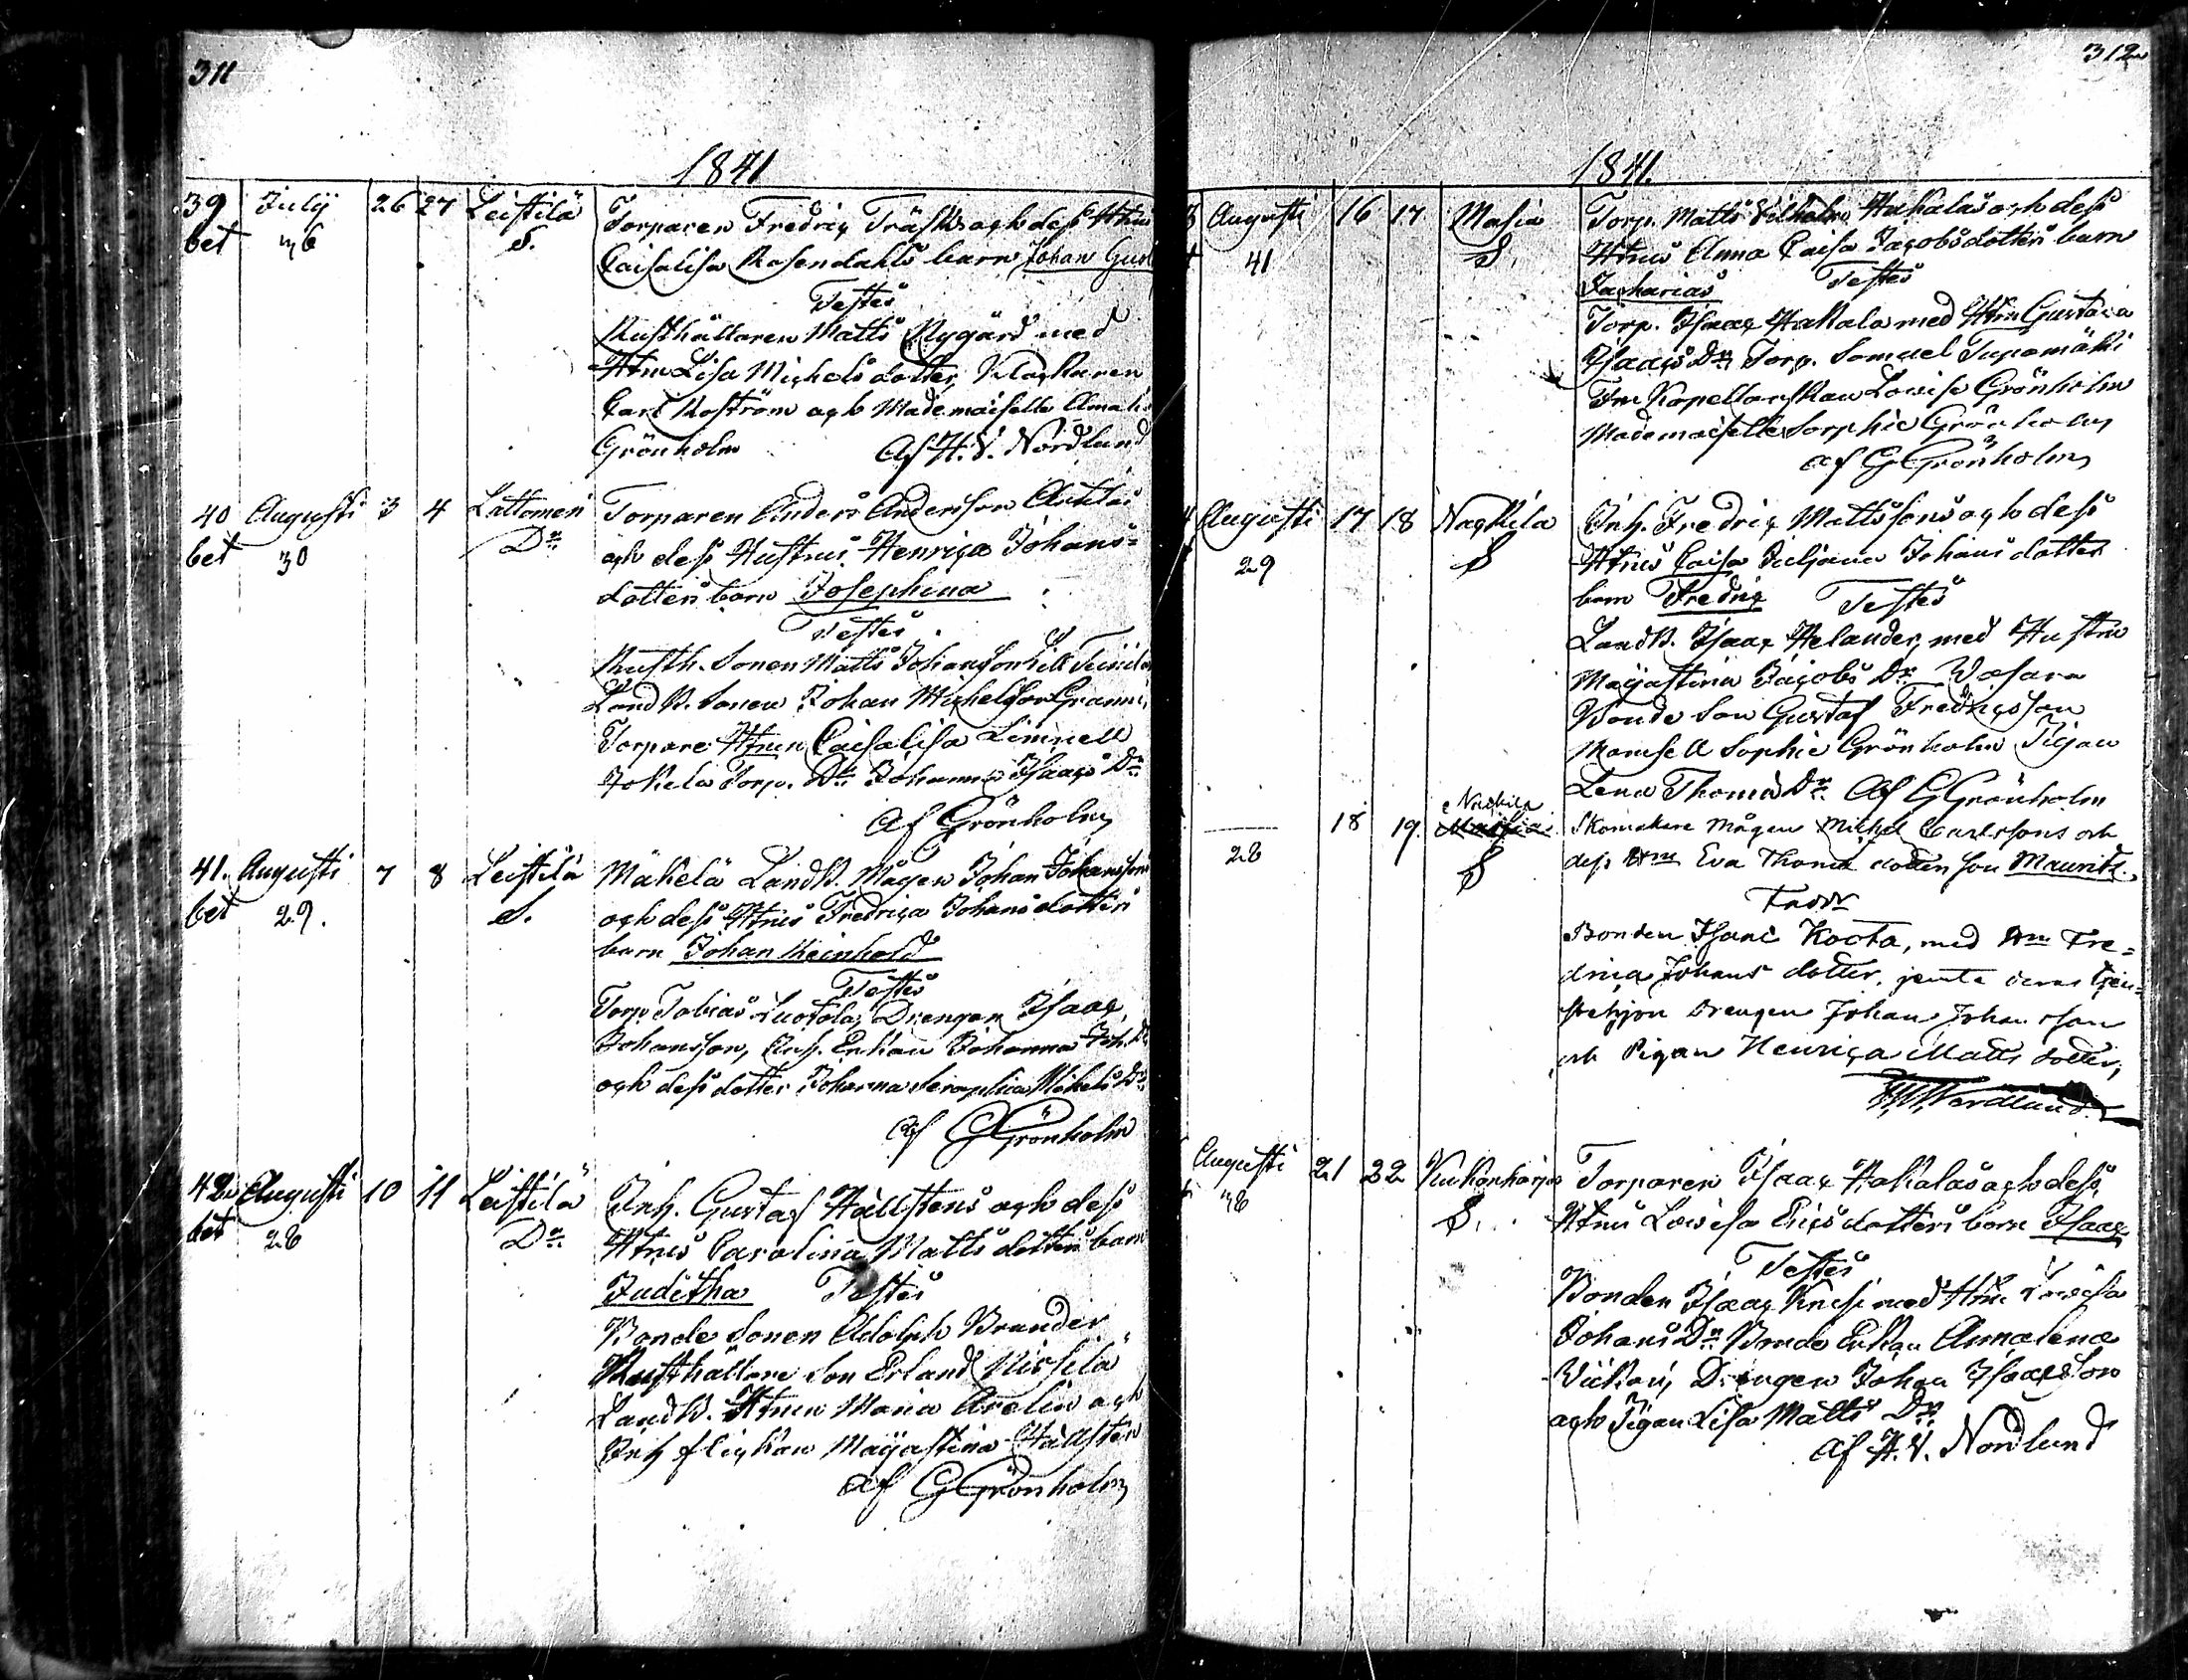 311
1841
39 July 26 27 Leistilä Torparen Fredriç Träsks och dess Hrus
bet 36 S. Caisalisa Rosendahls barn Johan Gust
Testes
Rusthållaren Matts Nygård med
Hru Lisa Michelsdotter, Klockaren
Carl Roström och Mademoiselle Amal
Grönholm Af H.V. Nordlund
40 Augusti 3 4 Lattomeri Torparen Anders Andersson
bet 30 Dr och dess Hustrus Henriça Johans-
dotters barn Josephina
Testes
Rusth. Sonen Matts Johansson
Landb. Sonen Johan Michelsson
Torpare Hrun Caisalisa Limnell
Jokela Torp. Dr Johanna Isaacs Dr
Af Grönholm
41. Augusti 7 8 Leistilä Mäkelä Landb. Mågen Johan Johanssons
bet 29. S. och dess Hrus Fredriça Johansdotters
barn Johan Reinhold
Testes
Torp. Tobias Luotola, Drengen Isaac
Johansson, Inh. Enkan Johanna Joh. Dr
och dess dotter Johanna Seraphia Michels Dr
Af G Grönholm
42 Augusti 10 11 Leistilä Inh. Gustaf Hällstens och dess
bet 28 Dr Hrus Carolina Mattsdotters barn
Juditha Testes
Bonde Sonen Adolph Brander
Rusthållare Son Erland
Landb. Hrun Maria och
Inh flickan Majastina Hällsten
Af G Grönholm
312
1841.
Augusti 16 17 Masia Torp. Matts Vilhelm Hakalas och dess
41 S. Hrus Anna Caisa Jacobsdotters barn
Zacharias Testes
Torp. Isaac Hakala med Hru Gustava
Isaacs Dr Torp. Samuel Tupamäki
Fru Kapellanskan Lovise Grönholm
Mademoiselle Sophie Grönholm
af G Grönholm
Augusti 17 18 Nackila Inh. Fredriç Mattssons och dess
29 S Hrus Caisa Juliana Johansdotters
barn Fredriç Testes
Landb. Isaac Helander, med Hustru
Majastina Jacobs Dr Vasara
Bonde Son Gustaf Fredricsson
Mamsell Sophie Grönholm Pigan
Lena Thomæ Dr. Af G Grönholm
18 19. Nackila Skomakare Mågen Michel Carlssons och
28 S dess Hru Eva Thomæ dotters son Mauritz.
Fadd
Bonden Isac Kocta, med Hru Fre-
drica Johans dotter, jemte deras tjen-
stehjon Drengen Johan Johansson
och Pigan Henriça Matts dotter,
Nordlund
Augusti 21 22 Kukonharja Torparen Isaac Hakalas och dess
36 S. Hrus Lovisa Ericsdotters barn Isaac
Testes
Bonden Isaac Knisi med Hru Lovisa
Johans Dr Bonde Enkan Annalena
Drengen Johan Isaacsson
och Pigan Lisa Matts Dr
Af H.V. Nordlund